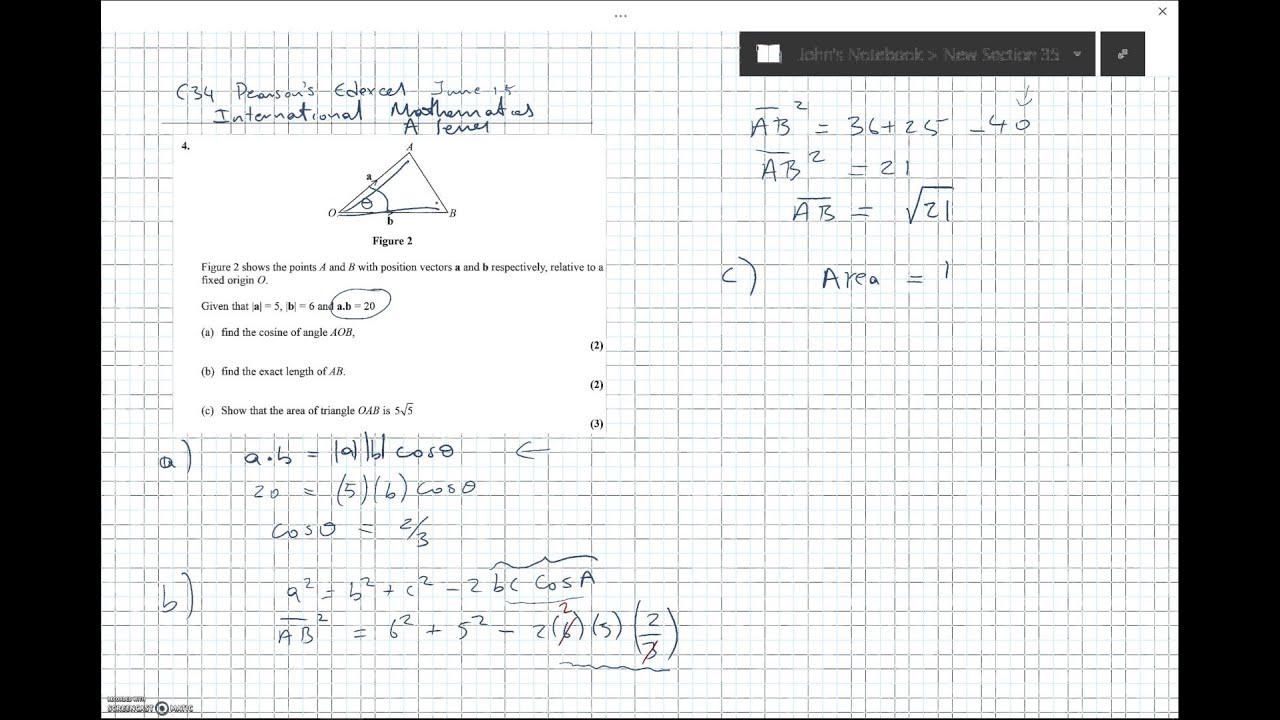 ...
John's Notebook > New Section 35
C34 Pearson's Edexcel June 15
International Mathematics
A level
4.
A
a
θ
O
B
b
Figure 2
Figure 2 shows the points A and B with position vectors a and b respectively, relative to a
fixed origin O.
Given that |a| = 5, |b| = 6 and a.b = 20
(a) find the cosine of angle AOB,
(2)
(b) find the exact length of AB.
(2)
(c) Show that the area of triangle OAB is 5√5
(3)
a) a.b = |a||b| cosθ ←
20 = (5)(6) cosθ
cosθ = 2/3
b) a² = b² + c² - 2bc cosA
AB² = 6² + 5² - 2(6)(5)(2/3)
2
AB² = 36+25 - 40
AB² = 21
AB = √21
c) Area = 1
RECORDED WITH
SCREENCAST MATIC